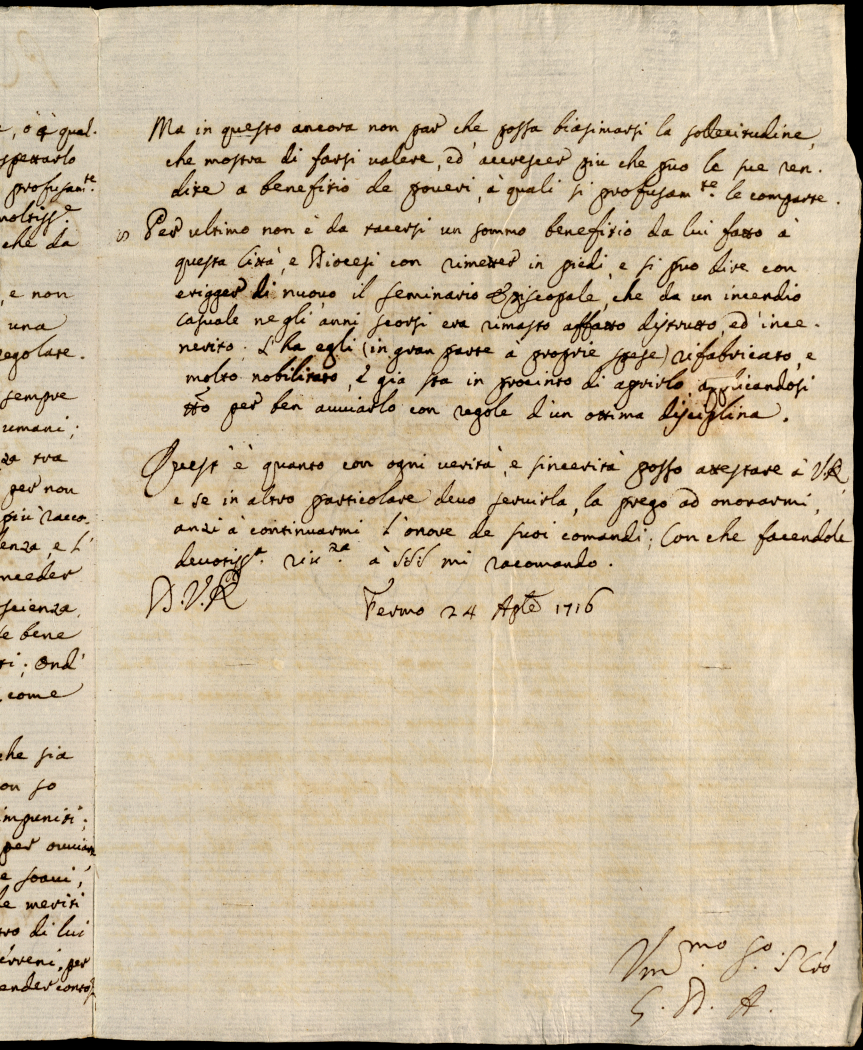 e, ò è qual-
spettarlo
profusam.te
moltiss.e
che da
e non
una
regolare.
sempre
umani;
za tra
per non
più racco-
lenza, e l'
scienza,
e bene
ti; Ond'
come
che sia
on so
impuniti;
per ovviar
e soavi,
le meriti
tro di lui
terreni, per
render conto,
Ma in questo ancora non par che possa biasimarsi la sollecitudine,
che mostra di farsi valere, ed' accrescer più che può le sue ren-
dite a benefitio de poveri, à quali si profusam.te le comparte.
Per ultimo non è da tacersi un sommo benefitio da lui fatto à
questa Città, e Diocesi con rimetter in piedi, e si può dire con
erigger di nuovo il seminario Episcopale, che da un incendio
casuale negli anni scorsi era rimasto affatto distrutto, ed' ince-
nerito. L'ha egli (in gran parte à proprie spese) rifabricato, e
molto nobilitato, e già sta in procinto di aprirlo applicandosi
tto per ben avviarlo con regole d'un ottima disciplina.
Quest' è quanto con ogni verità, e sincerità posso attestare à V.R.
e se in altro particolare devo servirla, la prego ad onorarmi,
anzi à continuarmi l'onore de suoi comandi; Con che facendole
devotiss.a riv.za à SSS mi racomando.
D.V.R
Fermo 24 Aple 1716
S. D. A.